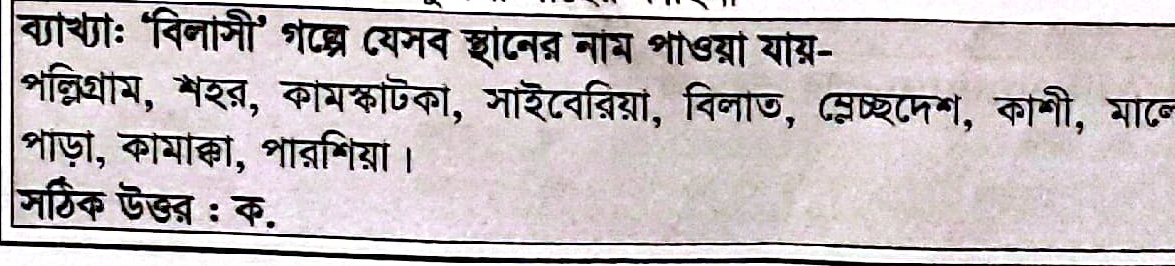 ব্যাখ্যা: ‘বিলাসী’ গল্পে যেসব স্থানের নাম পাওয়া যায়-
পল্লিগ্রাম, শহর, কামস্কাটকা, সাইবেরিয়া, বিলাত, ম্লেচ্ছদেশ, কাশী, মালো
পাড়া, কামাক্ষা, পারশিয়া।
সঠিক উত্তর : ক.